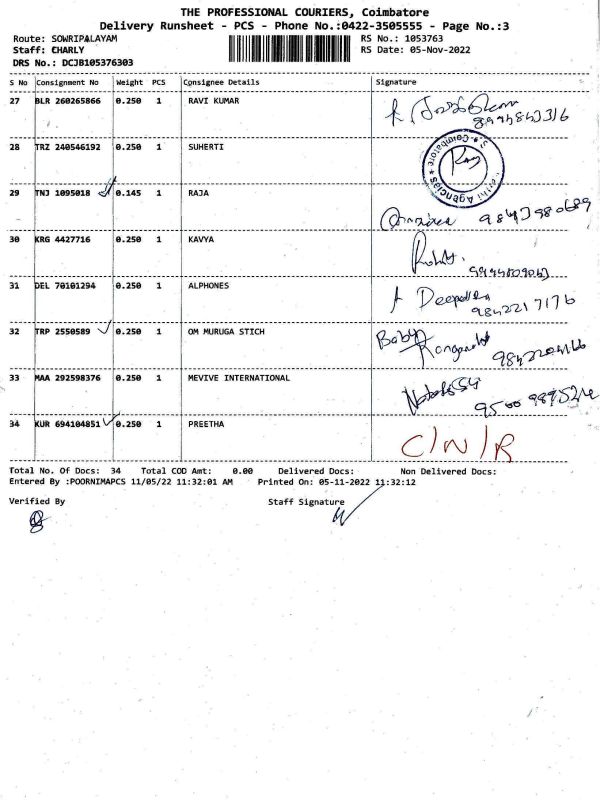 THE PROFESSIONAL COURIERS, Coimbatore
Delivery Runsheet - PCS - Phone No.:0422-3505555 - Page No.:3
Route: SOWRIPALAYAM RS No.: 1053763
Staff: CHARLY RS Date: 05-Nov-2022
DRS No.: DCJB105376303
S No Consignment No Weight PCS Consignee Details Signature
27 BLR 260265866 0.250 1 RAVI KUMAR
28 TRZ 240546192 0.250 1 SUHERTI
29 TNJ 1095018 0.145 1 RAJA
9843980689
30 KRG 4427716 0.250 1 KAVYA
31 DEL 70101294 0.250 1 ALPHONES
9842217176
32 TRP 2550589 0.250 1 OM MURUGA STICH Baby
33 MAA 292598376 0.250 1 MEVIVE INTERNATIONAL
34 KUR 694104851 0.250 1 PREETHA C/N/R
Total No. Of Docs: 34 Total COD Amt: 0.00 Delivered Docs: Non Delivered Docs:
Entered By :POORNIMAPCS 11/05/22 11:32:01 AM Printed On: 05-11-2022 11:32:12
Verified By Staff Signature